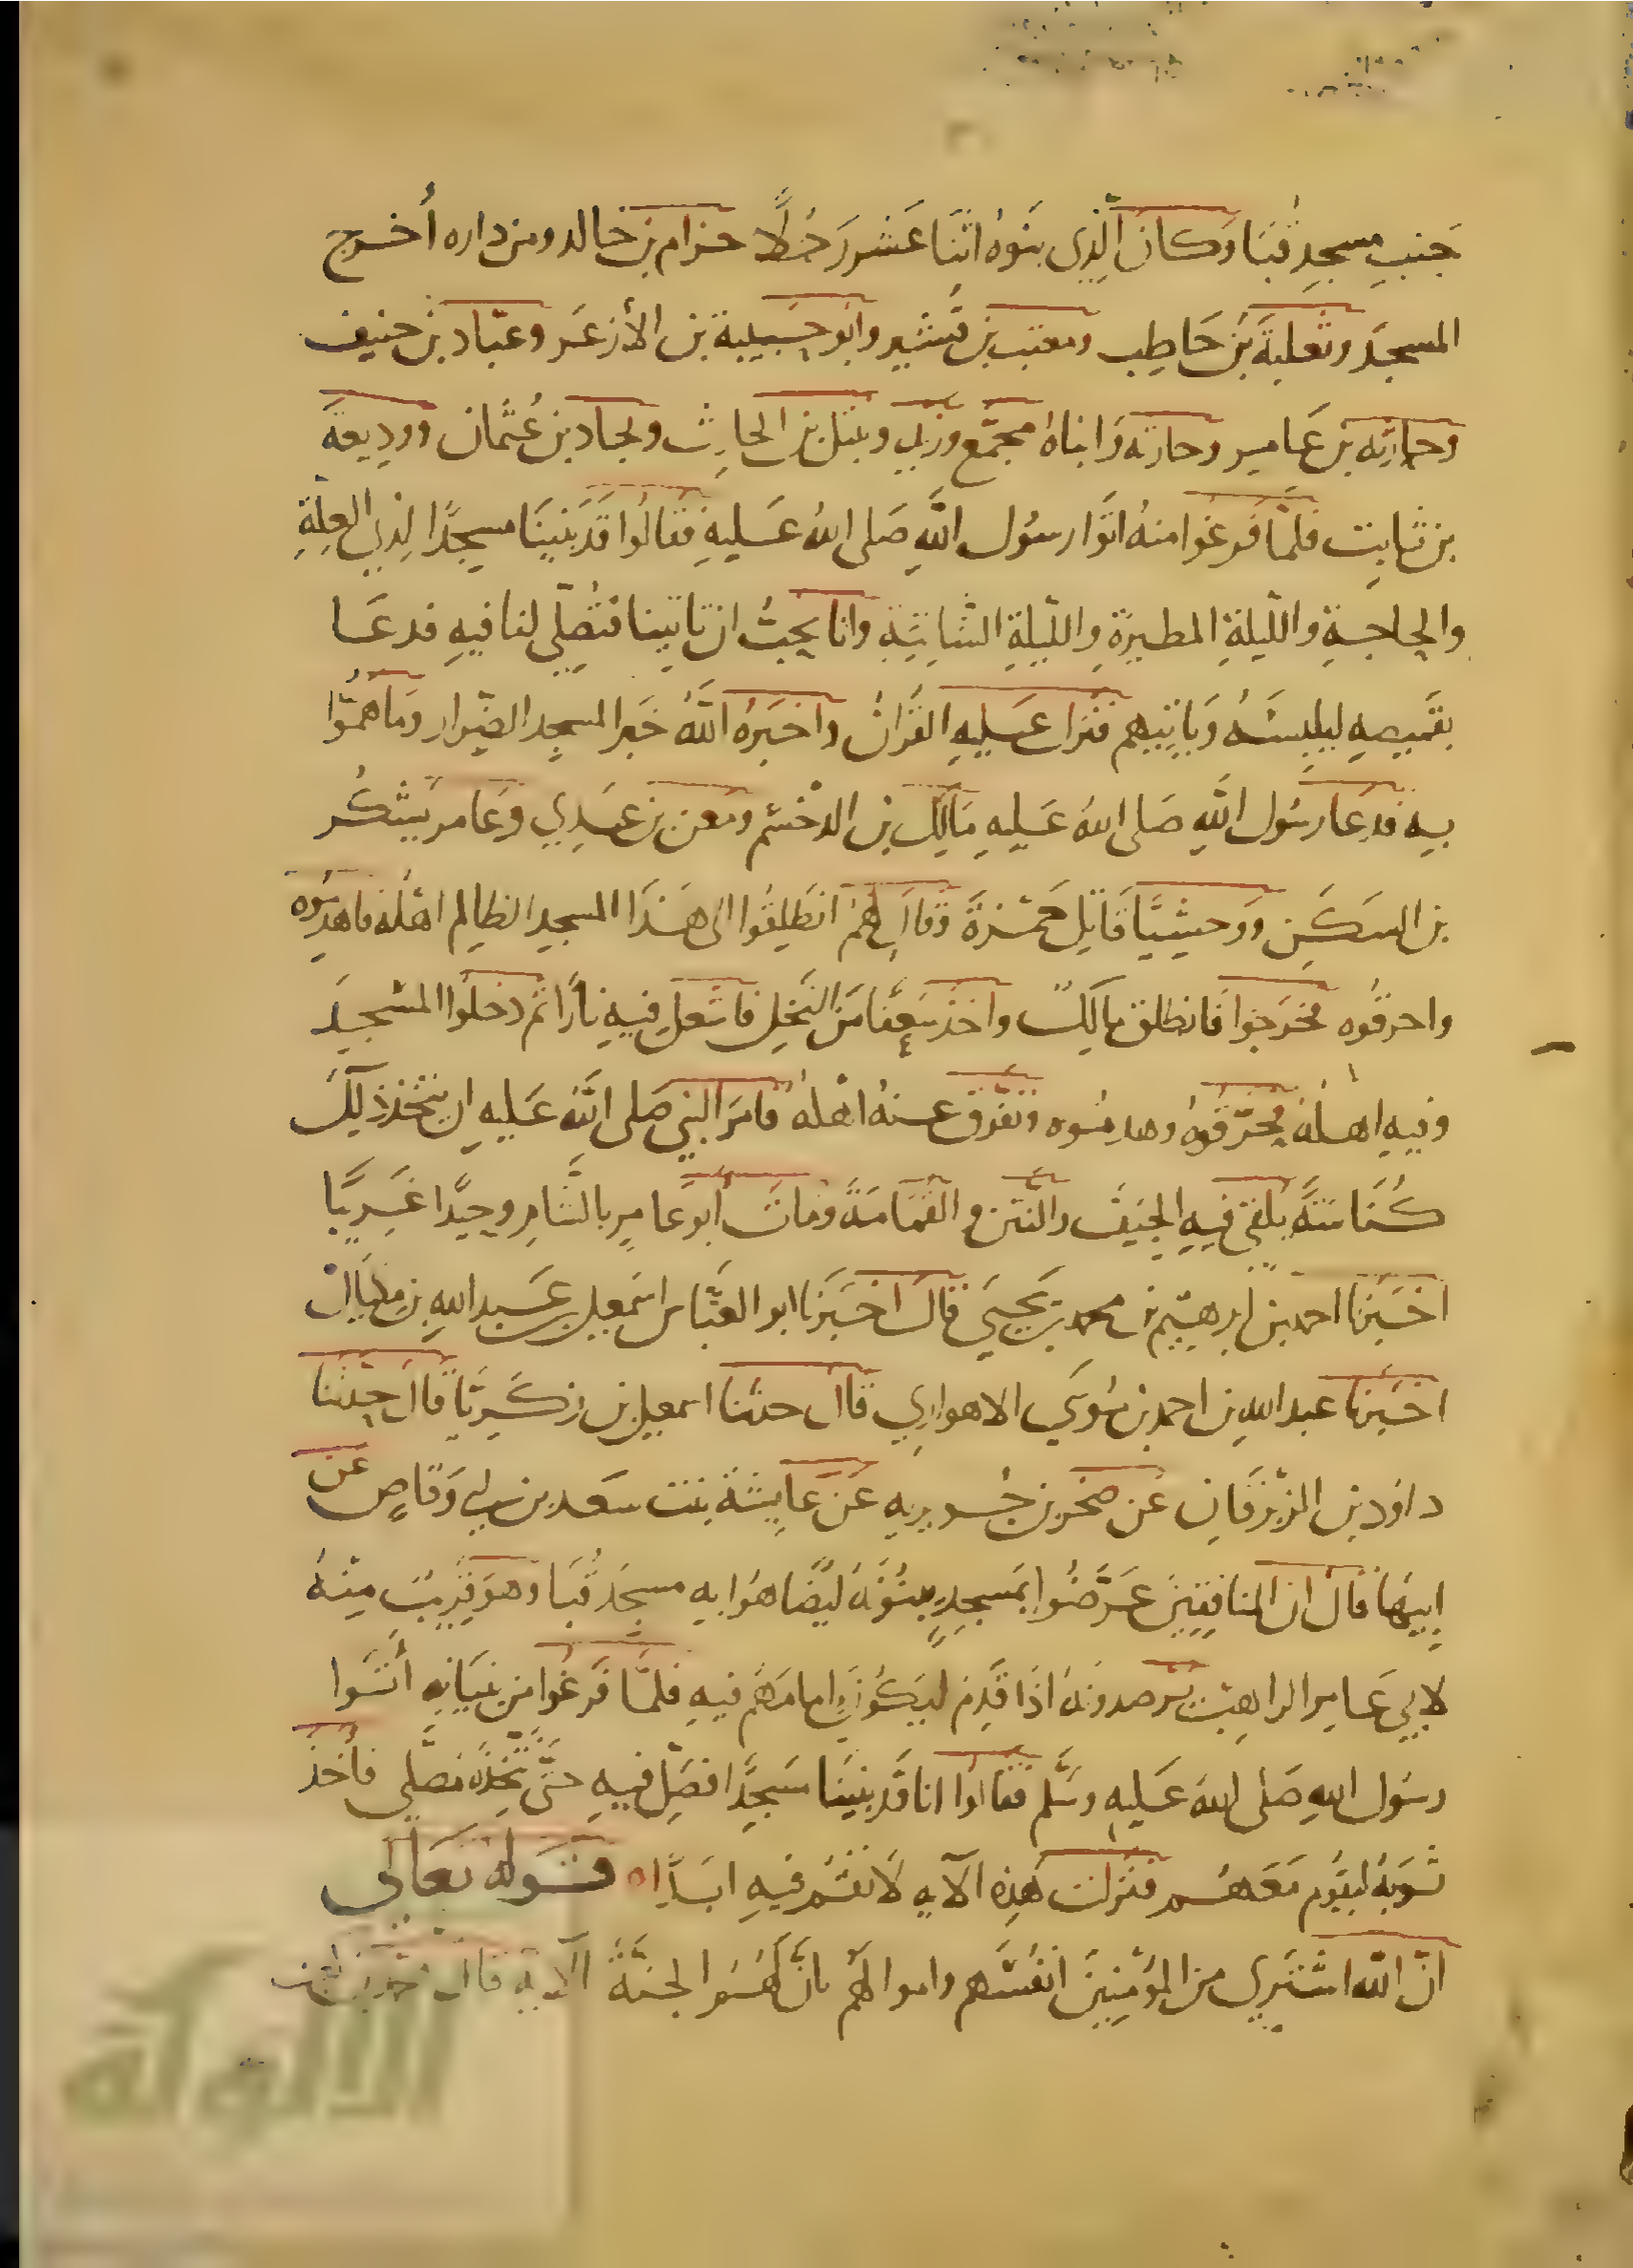 جَنبِ مسجدِ قُبَا وَكانَ الَّذِي بنَوهُ اثنَا عَشر رَجُلًا حزام بن خالد ومن داره أُخرج
المسجدَ وثعلبَة بنَ حَاطِب ومعتب بن قُشَير وابو حَبيبة بن الأزعَر وعبّاد بن حنيف
وحارثه بن عَامِر وحارثه وَابناهُ مجمَّع وزيد ونبتل بن الحارِث ولجاد بن عُثمان ووديعةَ
بن ثابِت فلمَّا فرغوا منهُ اتَوا رسُول اللَّهِ صَلى اللهُ عَليهِ فقالُوا قَد بَنينَا مسجدًا لِذِي العِلَّةِ
والحاجةِ واللّيلةِ المطيرةِ والليّلةِ الشَّاتِيَةِ وانا نحبُّ ان تاتيَنا فتُصَلّي لنا فيهِ فدعَا
بقَميصِهِ ليلبِسَهُ وَيَاتيهم فنزل عَليهِ القُرانُ واخبَرهُ اللَّهُ خبَر المسجد الضِرار وَما همّوا
بهِ فدعَا رسُول اللَّهِ صَلى اللهُ عَليهِ مَالِك بن الدخشم ومَعن بن عَدِي وَعَامر يَشكُر
بن السَكَن ووحشيًّا قَاتِل حَمْزةَ وَقال لهمْ انطَلِقُوا الى هَذَا المسجدِ الظالِم اهْلُهُ فاهدِمُوه
واحرقُوه فخرَجُوا فَانطلق مَالِكٌ واخذ سَعفًا مِنَ النَخلِ فاشعل فيهِ نارًا ثم دخلُوا المسْجدَ
وفيهِ اهلُهُ فحرَّقُوهُ وهدمُوه وتفَرق عنهُ اهْلُهُ فامَرَ النبي صَلى اللَّهُ عَليهِ ان يتخذ ذَلِكَ
كُنَاسَةً يلقى فيهِ الجيَفُ والنتن و القُمَامَة وَماتَ ابو عَامِر بالشَامِ وحِيدًا غَرِيبًا
اخبَرنا احمد بن ابرهيم بن محمد بن يَحيىَ قال اخبَرنا ابو العَبَّاس اسمعيل بن عبد اللهِ بن ميكال
اخبَرنا عبد اللهِ بن احمد بن مُوسَى الاهوازي قال حدثنا اسمعيل بن زكَريَّا قالَ حدثنا
داود بن الزبْرقَانِ عَن صخر بن جُويريه عَن عَايشَةَ بنت سَعد بن ابي وَقاصٍ عَن
ابِيهَا قَال ان المنافِقينَ عَرَّضُوا بمَسجِدٍ يبنُونَهُ ليُضَاهُوا به مسجدَ قُبَا وَهو قرِيبٌ مِنْهُ
لابي عَامِر الراهِبِ يرصدونهُ اذَا قَدِمَ ليَكُون امَامَهُم فيهِ فلمَّا فَرغُوا من بنيَانِه أتَوا
رسُول اللهِ صَلى اللهُ عَليهِ وسَلَّم فقالوا انا قَد بنينَا مَسجِدًا فصَلِّ فيهِ حتَّى نتَّخِذَه مُصَلَّى فأخذ
ثَوبَهُ ليقُوم مَعَهُم فنَزلت هَذِه الآيه لَا تَقُم فيهِ ابَدًا ه قَولُه تَعَالى
انَّ اللّهَ اشتَرى من المؤمِنِينَ انفُسَهم واموالَهُم بانَّ لَهُمُ الجنَّةَ الايَة قال محمد بن كعب
الألوكة